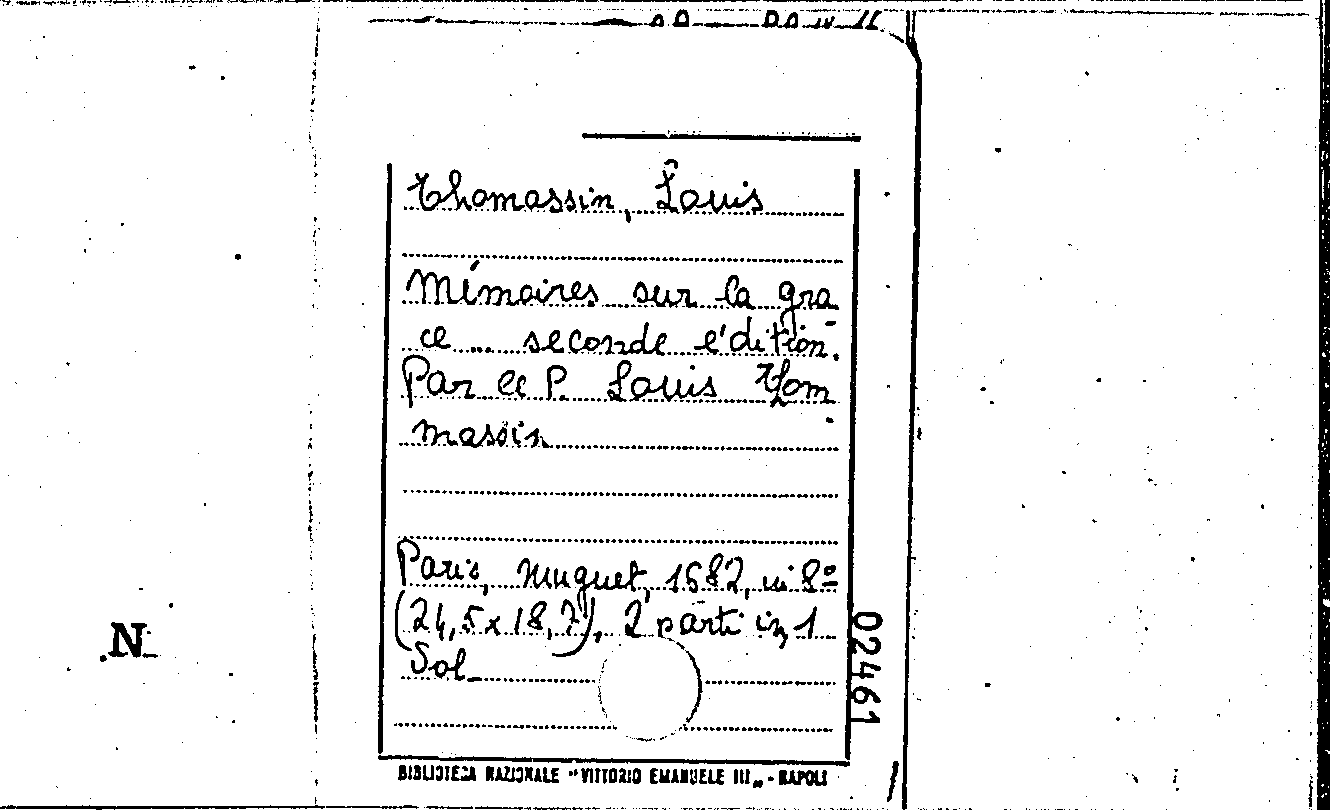 Thomassin, Louis
Mémoires sur la gra
ce ... seconde édition.
Par le P. Louis Thom
massin
Paris, Muguet, 1682, in 8º
(24,5x18,7), 2 parti in 1
Vol
02461
N
BIBLIOTECA NAZIONALE "VITTORIO EMANUELE III„ - NAPOLI